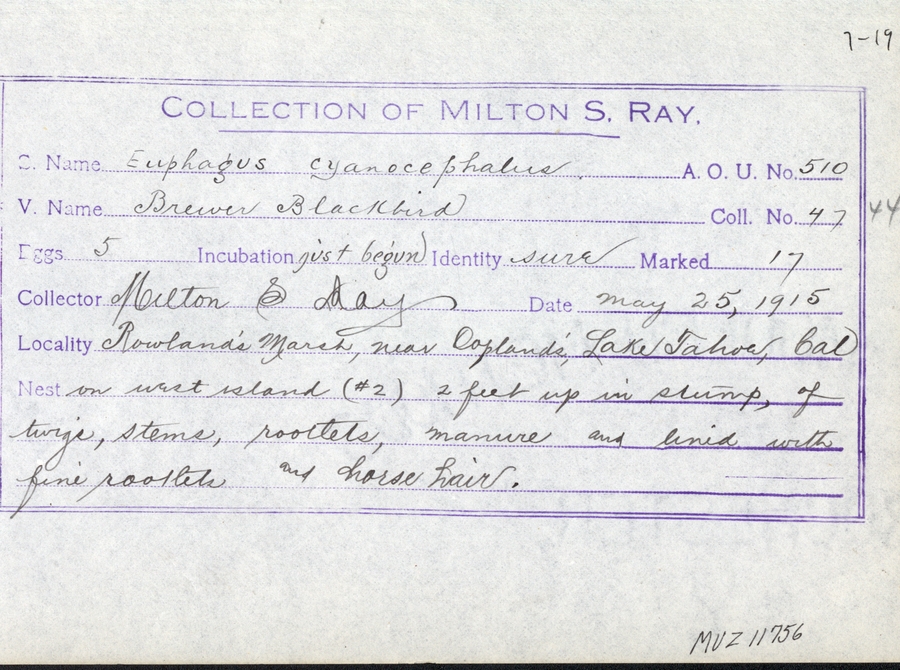 7-19
COLLECTION OF MILTON S. RAY.
S. Name Euphagus cyanocephalus. A. O. U. No. 510
V. Name Brewer Blackbird Coll. No. 47 44
Eggs 5 Incubation just begun Identity sure Marked 17
Collector Milton S Ray Date May 25, 1915
Locality Rowland's Marsh, near Copland's, Lake Tahoe, Cal
Nest on west island (#2) 2 feet up in stump, of
twigs, stems, rootlets, manure and lined with
fine rootlets and horse hair.
MVZ 11756